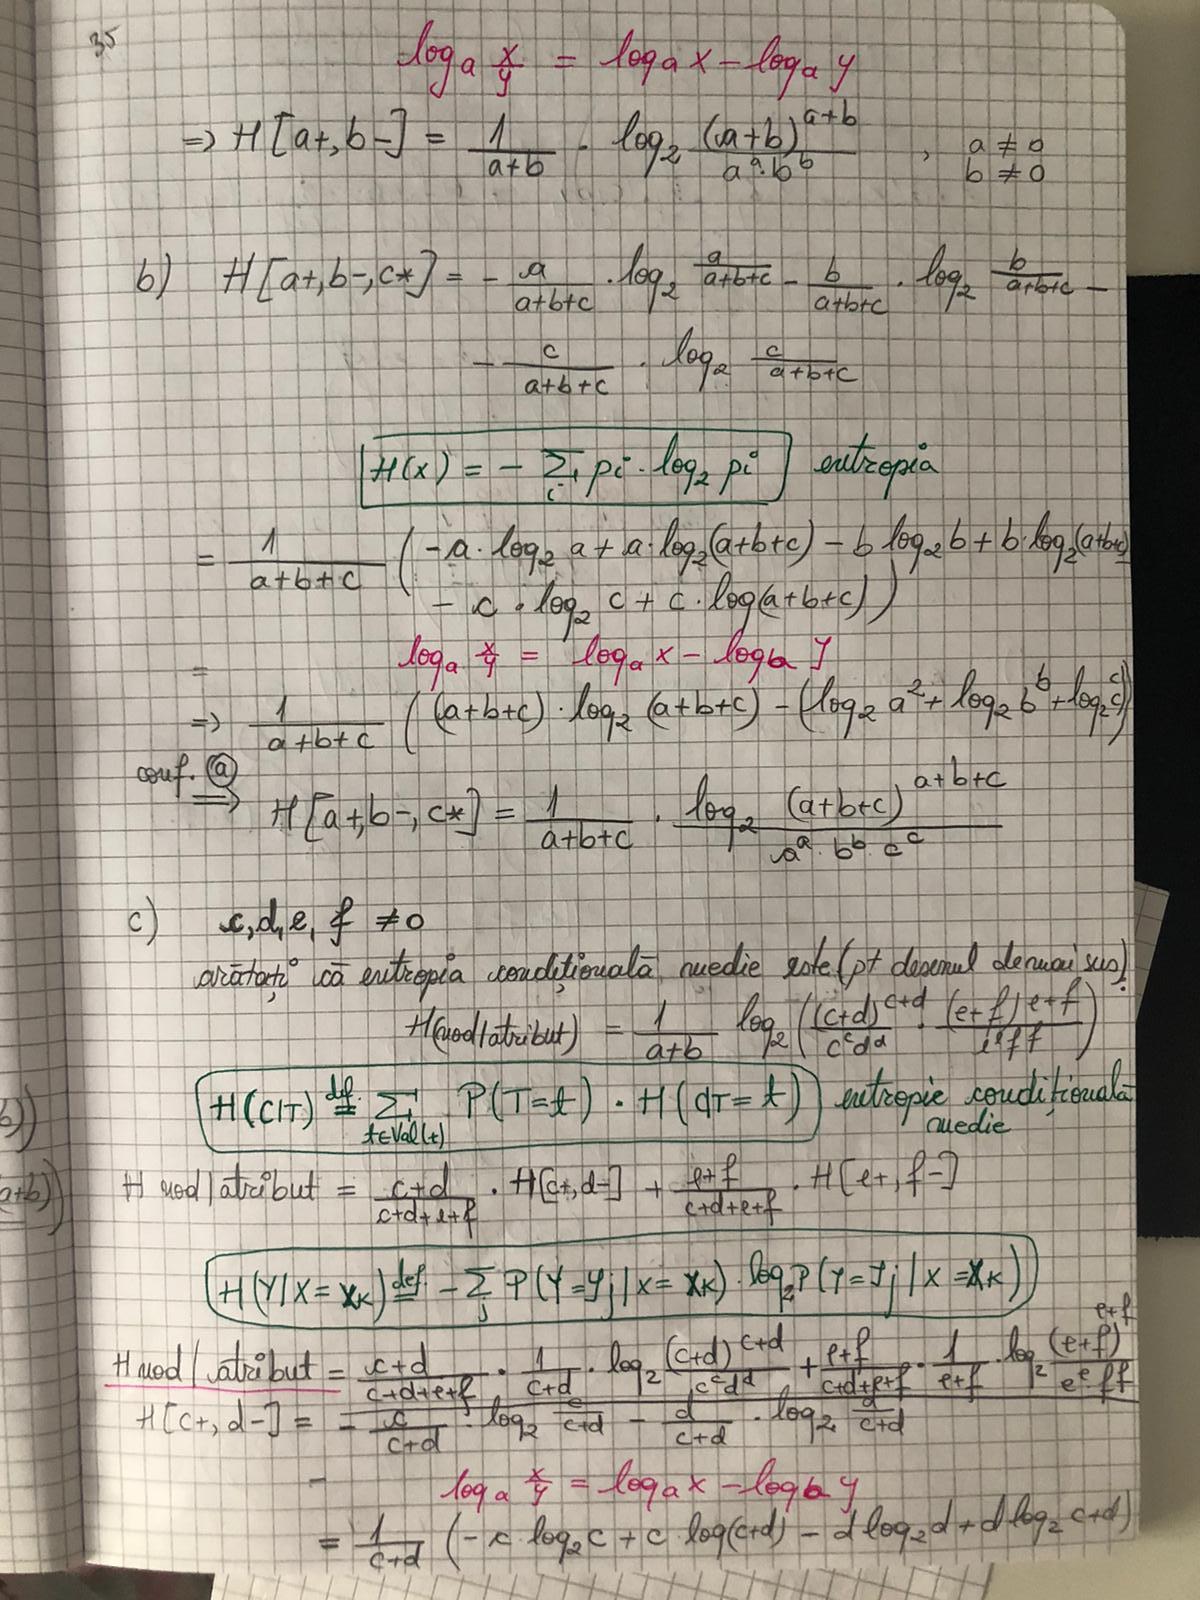 35
log_a x/y = log_a x - log_a y
=> H[a+, b-] = 1/(a+b) · log_2 (a+b)^(a+b)/(a^a · b^b) , a ≠ 0
b ≠ 0
b) H[a+, b-, c*] = - a/(a+b+c) · log_2 a/(a+b+c) - b/(a+b+c) · log_2 b/(a+b+c) -
- c/(a+b+c) · log_2 c/(a+b+c)
H(x) = - Σ_i pi · log_2 pi entropia
= 1/(a+b+c) (-a · log_2 a + a · log_2(a+b+c) - b log_2 b + b · log_2(a+b+c)
- c · log_2 c + c · log(a+b+c))
= log_a x/y = log_a x - log_b y
=> 1/(a+b+c) ((a+b+c) · log_2 (a+b+c) - (log_2 a^2 + log_2 b^b + log_2 c^c))
conf. (a) => H[a+, b-, c*] = 1/(a+b+c) · log_2 (a+b+c)^(a+b+c)/(a^a · b^b · c^c)
c) c, d, e, f ≠ 0
arătați că entropia condițională medie este (pt desenul de mai sus)
H(nod/atribut) = 1/(a+b) log_2 ((c+d)^(c+d)/(c^c d^d) · (e+f)^(e+f)/(e^e f^f))
H(C|T) def= Σ_(t∈Val(t)) P(T=t) · H(C|T=t) entropie condițională
medie
H nod/atribut = (c+d)/(c+d+e+f) · H[c+, d-] + (e+f)/(c+d+e+f) · H[e+, f-]
H(Y|X=x_k) def= - Σ_j P(Y=y_j|X=x_k) · log_2 P(Y=y_j|X=x_k)
H nod/atribut = (c+d)/(c+d+e+f) · 1/(c+d) · log_2 (c+d)^(c+d)/(c^c d^d) + (e+f)/(c+d+e+f) · 1/(e+f) · log_2 (e+f)^(e+f)/(e^e f^f)
H[c+, d-] = - c/(c+d) · log_2 c/(c+d) - d/(c+d) · log_2 d/(c+d)
- log_a x/y = log_a x - log_b y
= 1/(c+d) (-c · log_2 c + c · log(c+d) - d log_2 d + d log_2 c+d)
b))
a+b))